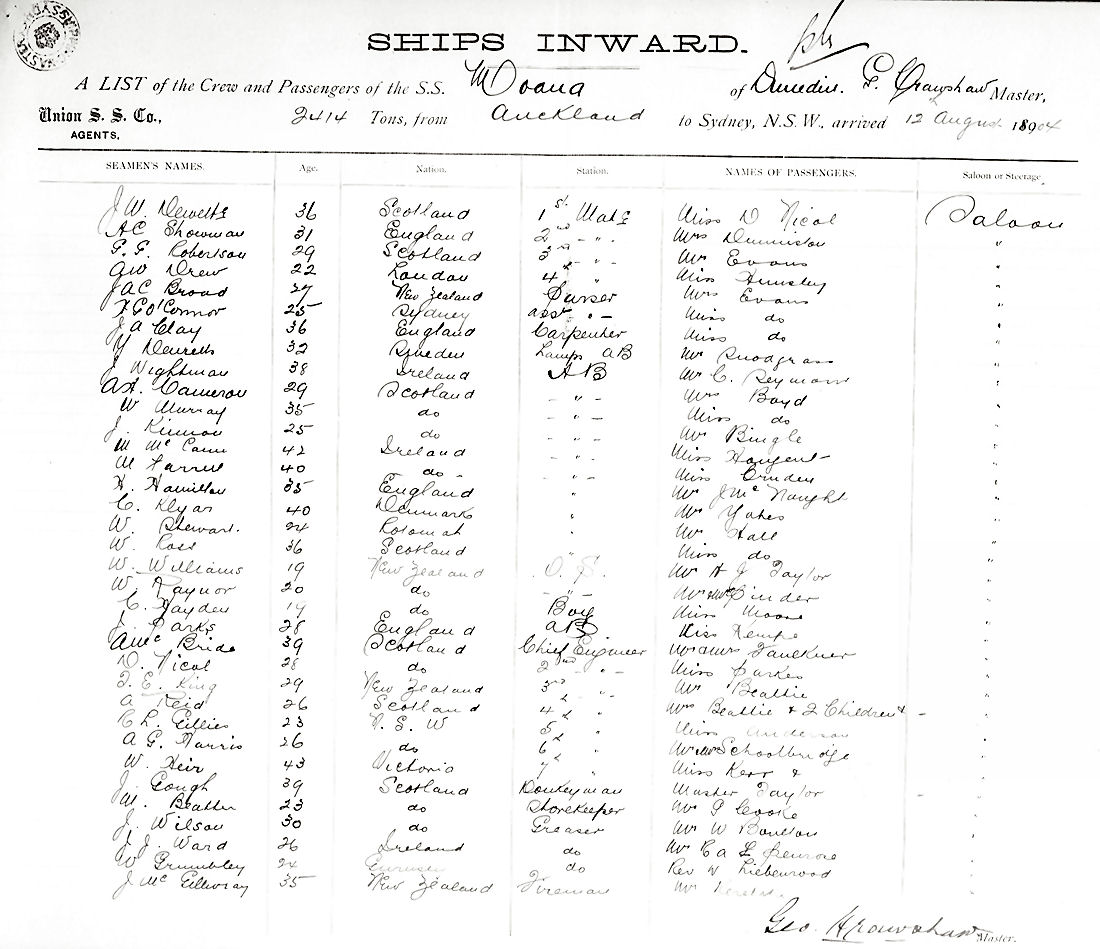 SHIPS INWARD.
A LIST of the Crew and Passengers of the S.S. Moana of Dunedin. G. Crawshaw Master,
Union S. S. Co., 2414 Tons, from Auckland to Sydney, N.S.W., arrived 12 August 1904
AGENTS.
SEAMEN'S NAMES. Age. Nation. Station. NAMES OF PASSENGERS. Saloon or Steerage.
J W. 36 Scotland 1st Mate Miss D Nicol Saloon
AC Showman 31 England 2nd - " - Mrs Denniston "
G. G. Robertson 29 Scotland 3rd - " - Mr Evans "
GW Drew 22 London 4th " Miss "
JAC Broad 27 New Zealand Purser Mrs Evans "
F G O'Connor 25 Sydney asst " - Miss do "
J A Clay 36 England Carpenter Miss do "
32 Sweden Lamps AB Mr Snodgrass "
J. Wightman 38 Ireland AB Mr C. Seymour "
Cameron 29 Scotland - " - Mrs Boyd "
W Murray 35 do - " - Miss do "
J. Kinnon 25 do - " - Mr Bingle "
M McCann 42 Ireland - " - Miss "
M Farrell 40 do - - " - Miss "
H. Hamilton 35 England " Mr J McNaught "
C. 40 Denmark " Mr Yates "
W. Stewart. 24 " Mr Hall "
W. Ross 36 Scotland " Miss do "
W. Williams 19 New Zealand O. S. Mr A J Taylor "
W. Raynor 20 do - " - Mr & Mrs Pinder "
C. Hayden 19 do Boy Miss Moore "
J. Parks 28 England AB Miss Kempe "
A Mc Bride 39 Scotland Chief Engineer Mr & Mrs Faulkner "
D. Nicol 28 do 2nd - " - Miss Parkes "
E. King 29 New Zealand 3rd - " - Mr Beattie "
A Reid 26 Scotland 4th " Mrs Beattie & 2 Children + -
C L. Gillies 23 N. S. W 5th " Miss Anderson "
A G. Harris 26 do 6th " Mr & Mrs Schoolbridge "
W. Heir 43 Victoria 7th " Miss Kerr & "
J. Gough 39 Scotland Donkeyman Master Taylor -
M. Beattie 23 do Storekeeper Mr P Cooke "
J. Wilson 30 do Greaser Mr W Boulton "
J. J. Ward 26 Ireland do Mr C a L Penrose "
W Brumbley 24 do Rev W Liebenrood "
J McGillivray 35 New Zealand Fireman Mr "
Geo. H Crawshaw Master.